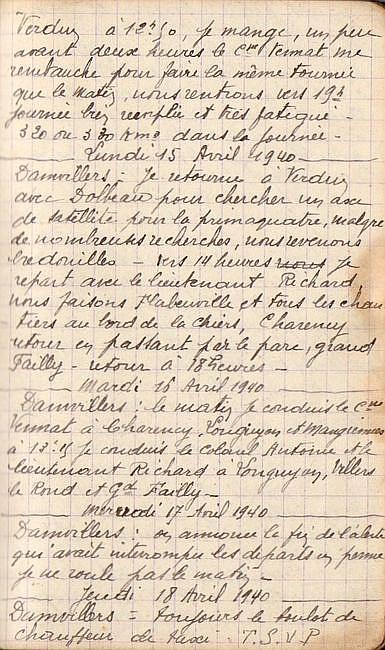 Verdun à 12h50, je mange, un peu
avant deux heures le Cne Vermat me
rembauche pour faire la même tournée
que le matin, nous rentrons vers 19h
journée bien remplie et très fatigué -
320 ou 330 kms dans la journée -
Lundi 15 Avril 1940
Damvillers : Je retourne à Verdun
avec Dolbeau pour chercher un axe
de satellite pour la primaquatre, malgré
de nombreuses recherches, nous revenons
bredouilles - vers 14 heures nous je
repart avec le lieutenant Richard,
nous faisons Flabeuville et tous les chan
tiers au bord de la Chiers, Charency
retour en passant par le parc, grand
Failly - retour à 18 heures -
Mardi 16 Avril 1940
Damvillers : le matin je conduis le Cne
Vermat à Charency, Longuyon et Mangiennes
à 13h15 je conduis le Colonel Antoine et le
lieutenant Richard à Longuyon, Villers
le Rond et Gd Failly -
Mercredi 17 Avril 1940
Damvillers : on annonce la fin de l'alerte
qui avait interrompu les départs en perme
je ne roule pas le matin -
Jeudi 18 Avril 1940
Damvillers = toujours le boulot de
chauffeur de taxi - T.S.V.P